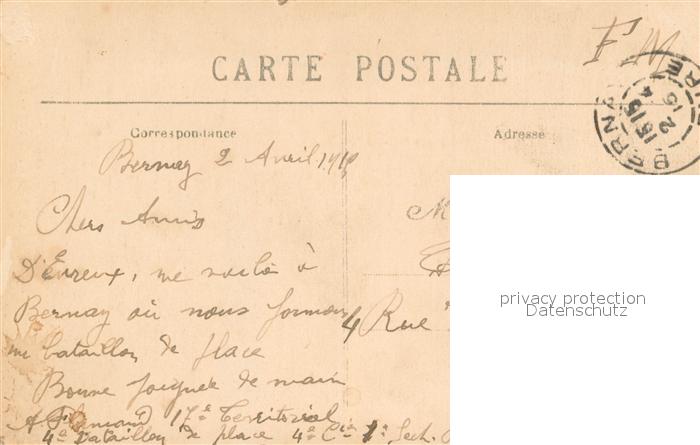 F M
CARTE POSTALE
Correspondance
Adresse
BERNAY
15 15
2
Bernay 2 Avril 1915
Chers Amis
D'Evreux, me voilà à
Bernay où nous formons
un bataillon de place
Bonne poignée de main
17e Territorial
4e Bataillon de place 4e Cie 1e Sect.
M
4 Rue
privacy protection
Datenschutz